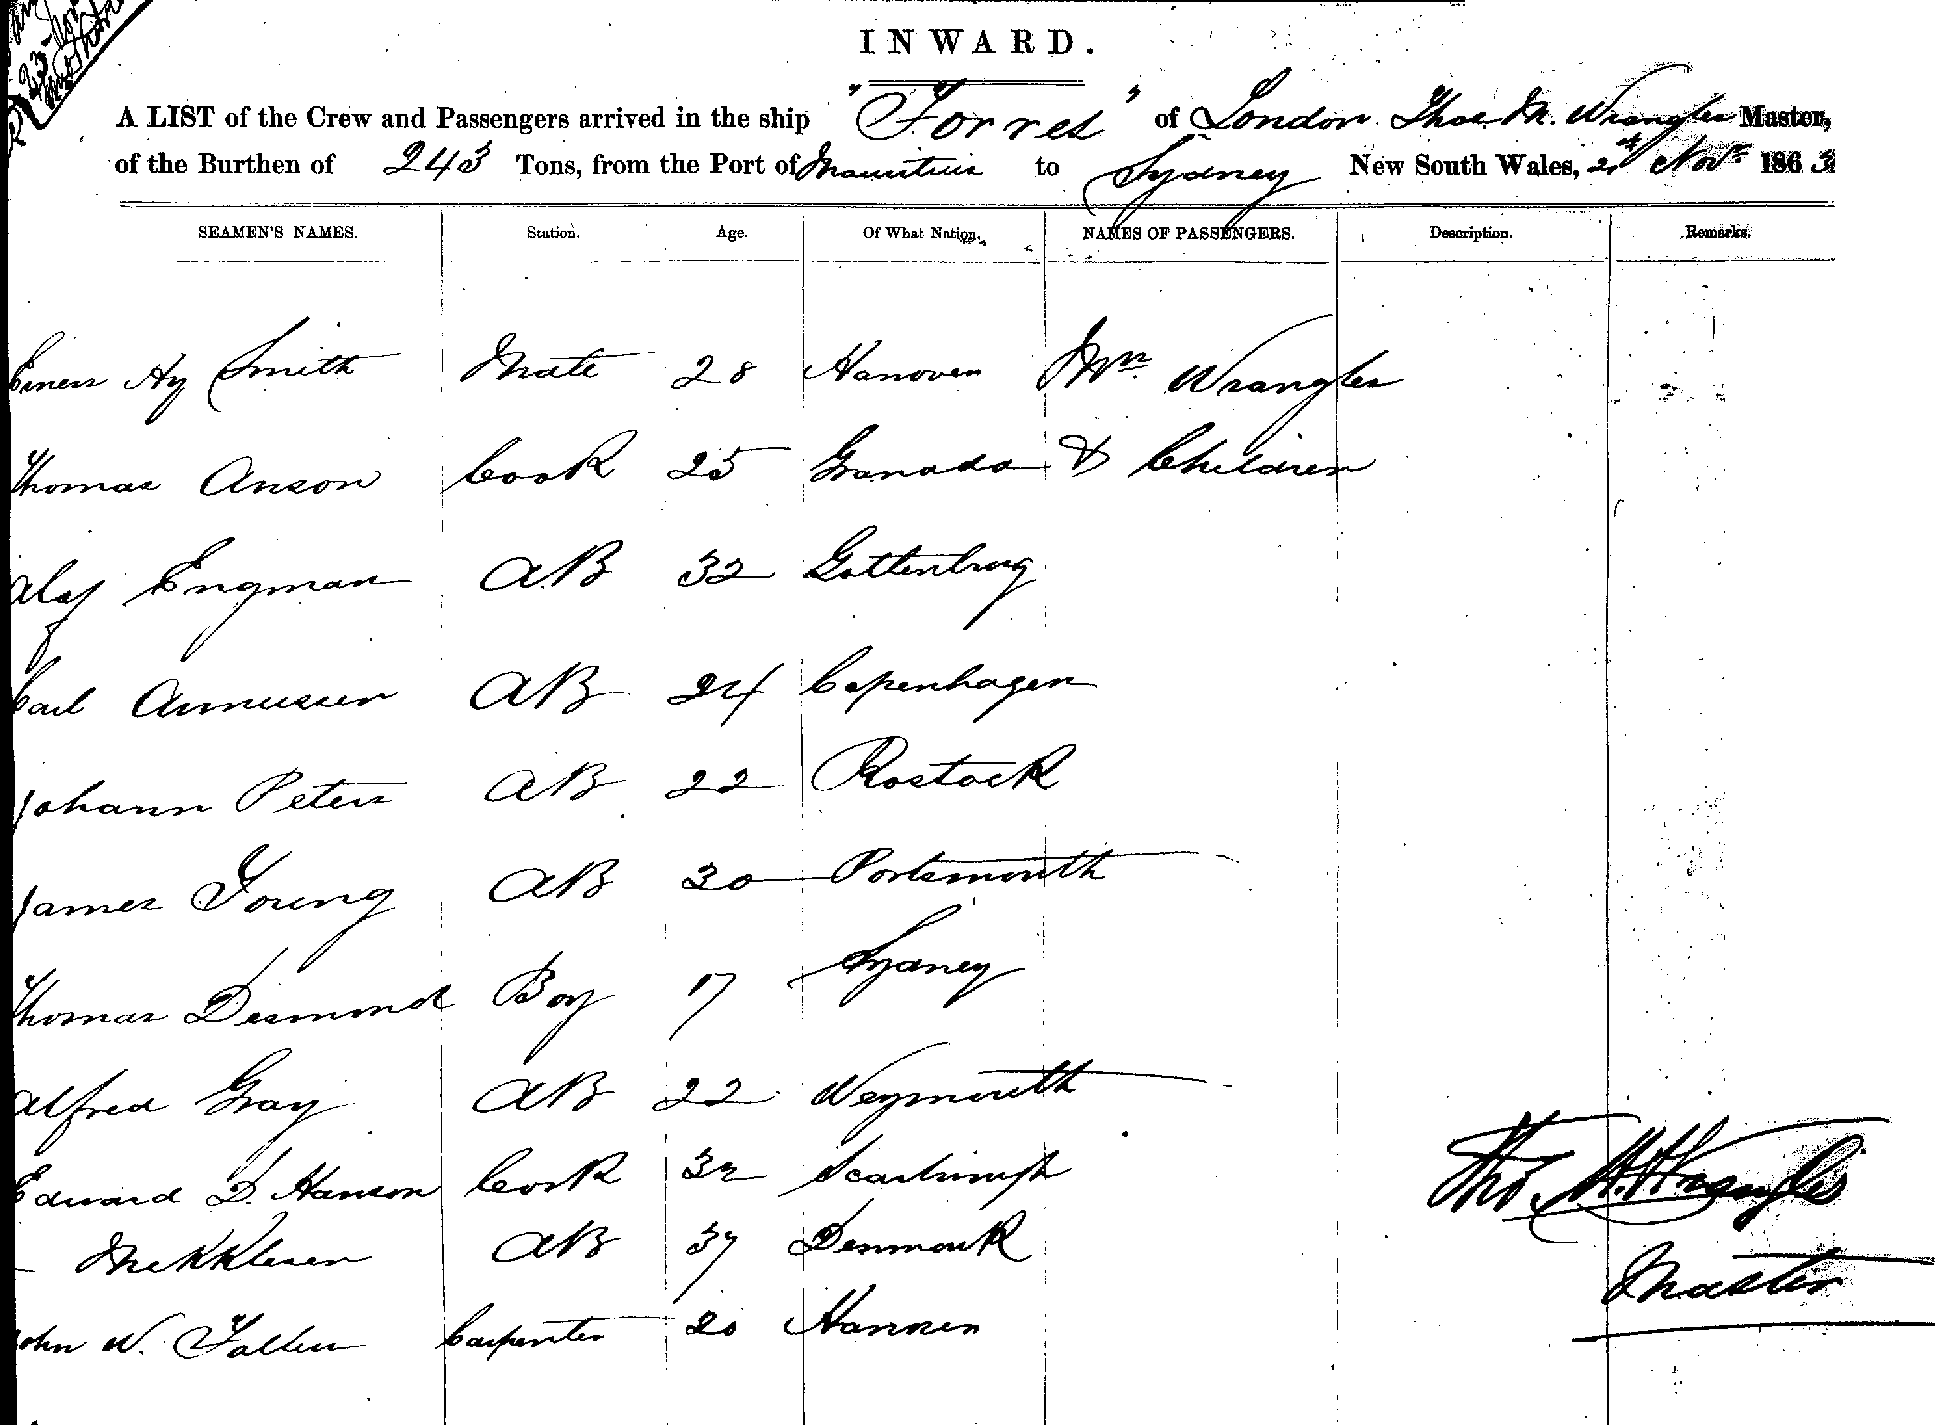 INWARD.
A LIST of the Crew and Passengers arrived in the ship "Forres" of London Thos. M. Wrangles Master,
of the Burthen of 243 Tons, from the Port of Mauritius to Sydney New South Wales, 2nd Novr 1863
SEAMEN'S NAMES. Station. Age. Of What Nation. NAMES OF PASSENGERS. Description. Remarks.
Hy Smith Mate 28 Hanover Mrs Wrangles
Thomas Anson Cook 25 Granada & Children
Olaf Engman AB 32 Gottenburg
Carl Asmussen AB 24 Copenhagen
Johann Peters AB 22 Rostock
James Young AB 30 Portsmouth
Thomas Desmond Boy 17 Sydney
Alfred Gray AB 22 Weymouth
Edward D. Hanson Cook 32 Scarborough
— Mekklesen AB 37 Denmark
John W. Carpenter 20 Hanover
Tho. M. Wrangles
Master